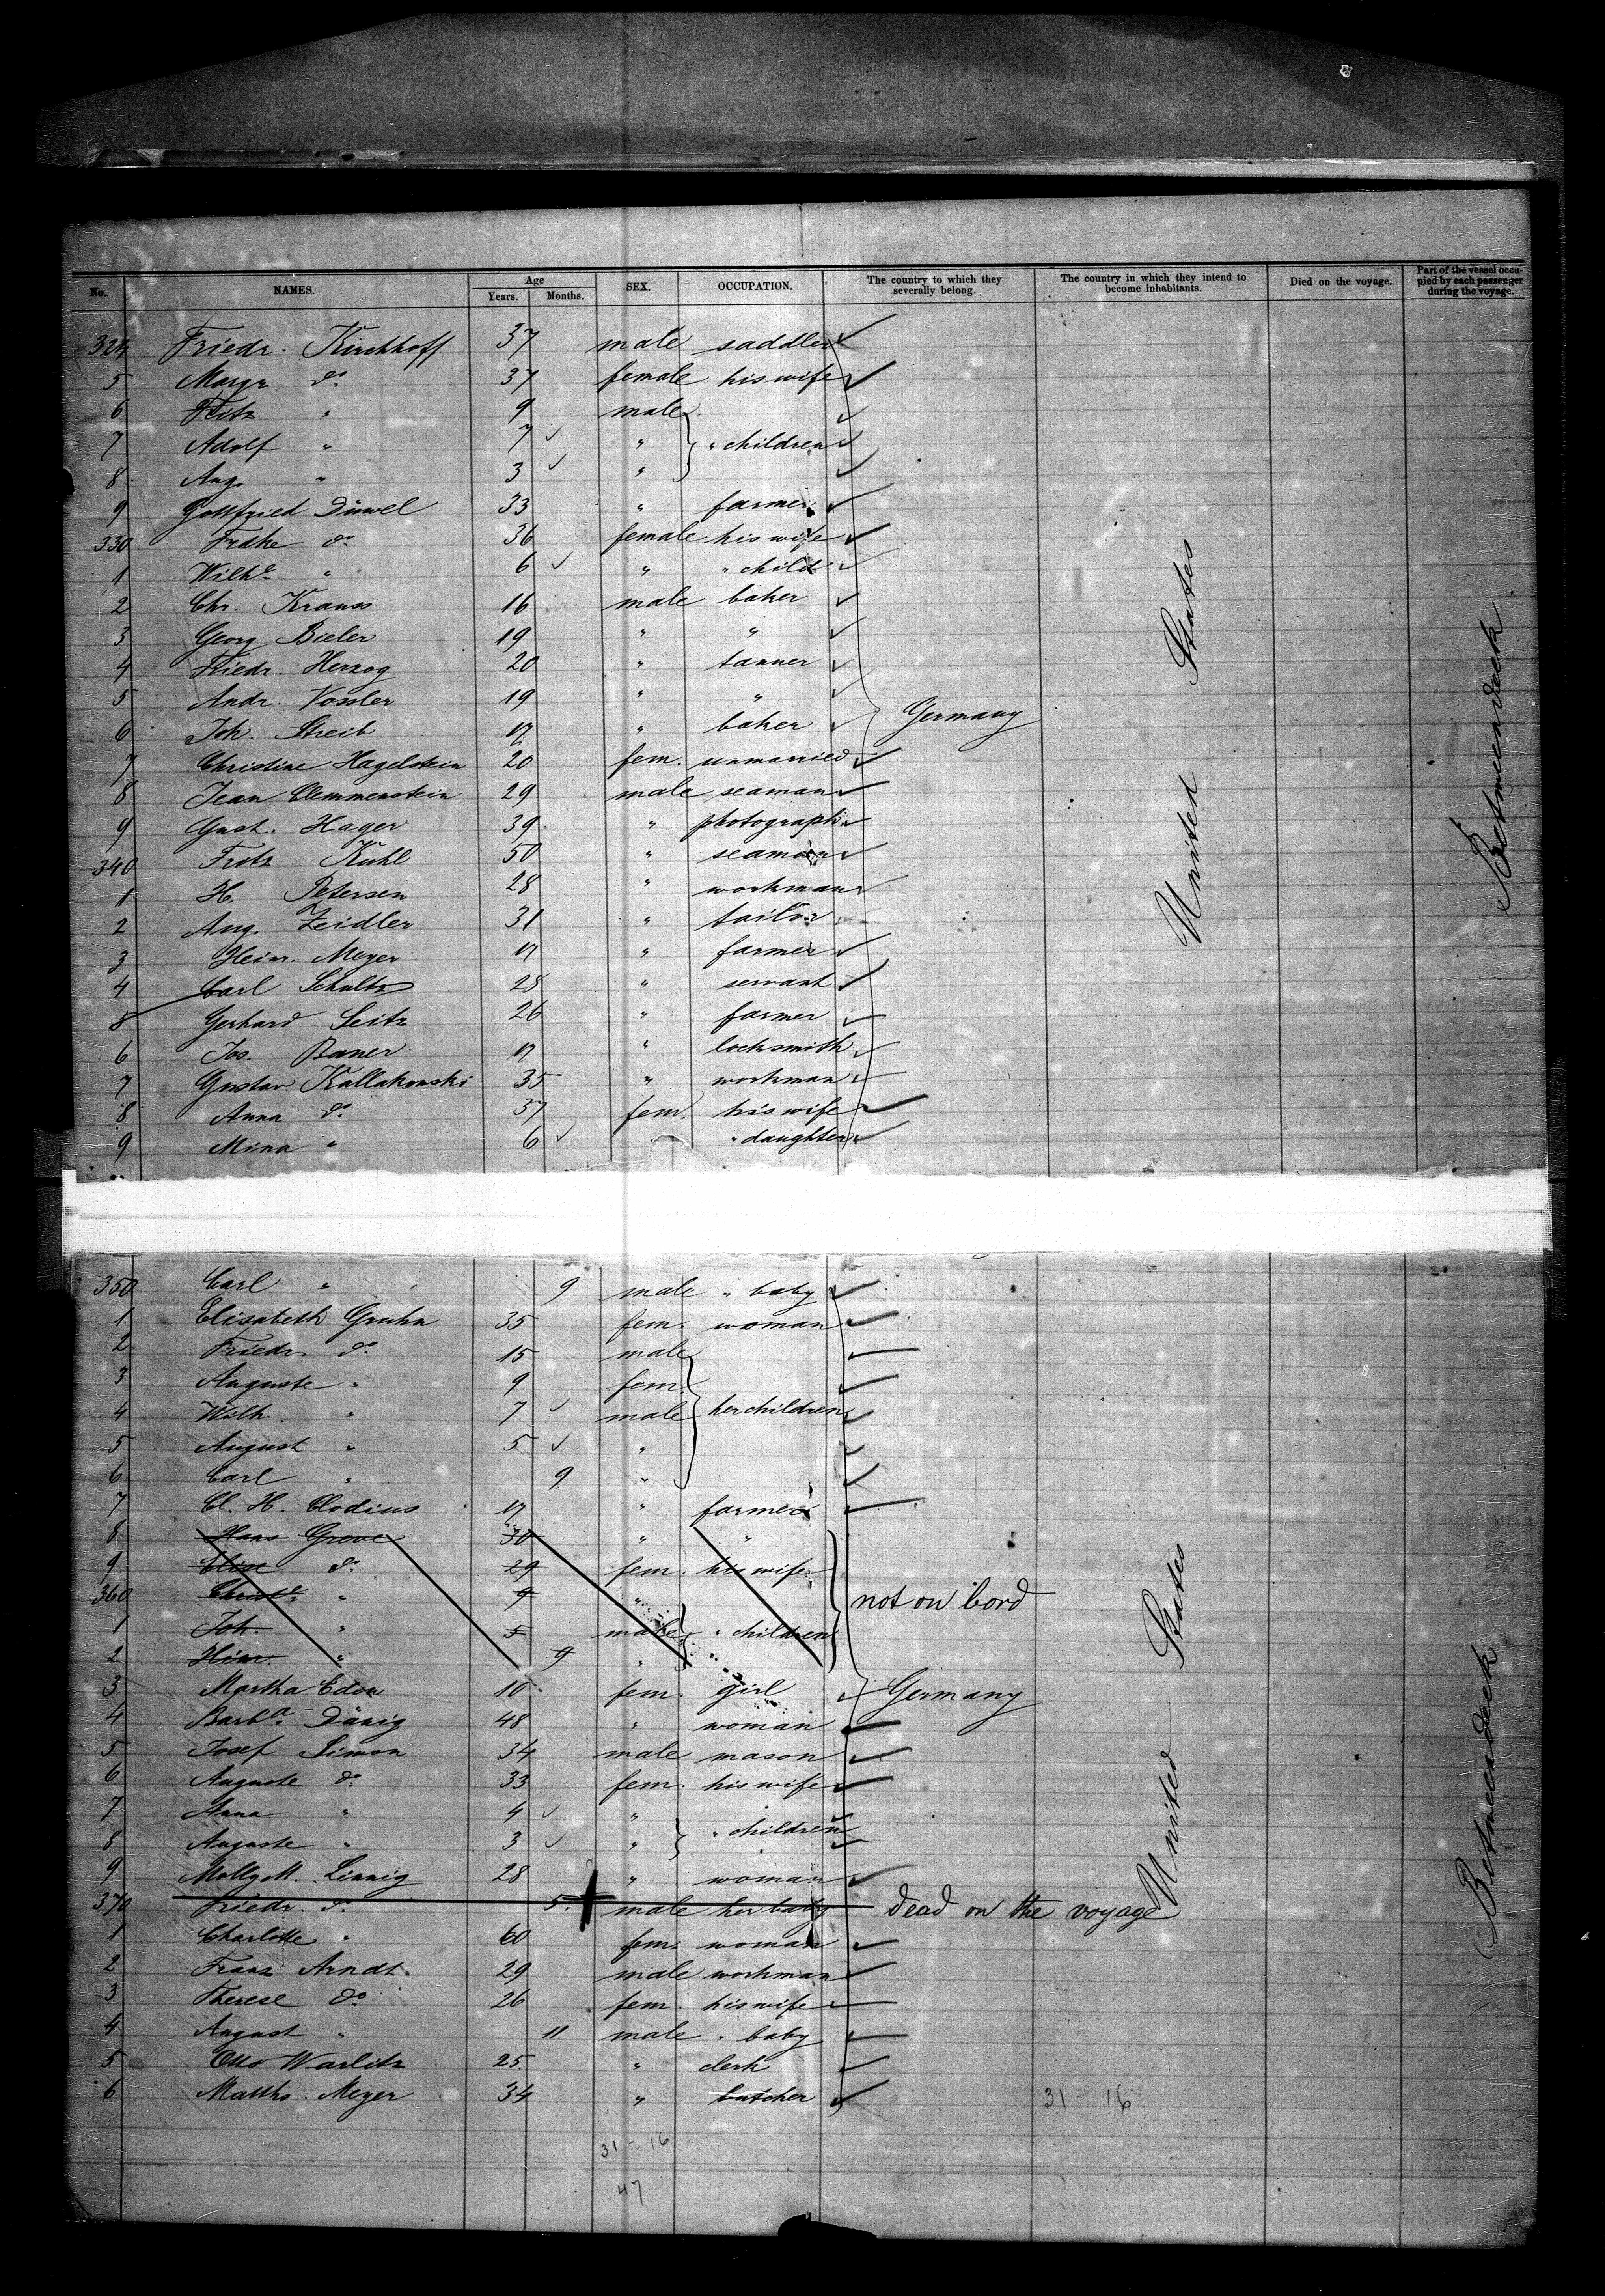 No. NAMES. Age Years. Months. SEX. OCCUPATION. The country to which they severally belong. The country in which they intend to become inhabitants. Died on the voyage. Part of the vessel occupied by each passenger during the voyage.
324 Friedr. Kirchhoff 37 male saddler
5 Margr. do. 37 female his wife
6 Fritz " 9 male
7 Adolf " 7 " " children
8 Aug. " 3 "
9 Gottfried Düwel 33 " farmer
330 Frdke do. 36 female his wife
1 Wilhe. " 6 " " child
2 Chr. Krauss 16 male baker
3 Georg Bieler 19 " "
4 Friedr. Herzog 20 " tanner
5 Andr. Vossler 19 " "
6 Joh. Streib 17 " baker Germany
7 Christine Hagelstein 20 fem. unmarried
8 Jean Clemmenstein 29 male seaman
9 Gust. Hager 39 " photograph
340 Fritz Kühl 50 " seaman
1 H. Petersen 28 " workman
2 Aug. Zeidler 31 " tailor
3 Heinr. Meyer 17 " farmer
4 Carl Schultz 28 " servant
5 Gerhard Seitz 26 " farmer
6 Jos. Bauer 17 " locksmith
7 Gustav Kallakowski 35 " workman
8 Anna do. 37 fem. his wife
9 Mina " 6 " daughter
United States
Betweendeck
350 Carl " 9 male " baby
1 Elisabeth Gruhn 35 fem. woman
2 Friedr. do. 15 male
3 Auguste " 9 fem.
4 Wilh. " 7 male her children
5 August " 5 "
6 Carl " 9 "
7 Cl. H. Clodius 17 " farmer
8 Hans Greve 30 " "
9 Elise do. 29 fem. his wife
360 Christe. " 7 " not on bord
1 Joh. " 5 male " children
2 Hinr. " 9 "
3 Martha Eden 10 fem. girl Germany
4 Barba. Dänig 48 " woman
5 Josef Simon 34 male mason
6 Auguste do. 33 fem. his wife
7 Anna " 4 "
8 Auguste " 3 " " children
9 Molly M. Linnig 28 " woman
370 Friedr. do. 5 male her baby dead on the voyage
1 Charlotte " 60 fem. woman
2 Franz Arndt 29 male workman
3 Therese do. 26 fem. his wife
4 August " 11 male " baby
5 Otto Warlitz 25 " clerk
6 Matths. Meyer 34 " butcher
United States
Betweendeck
31 - 16
31 - 16
47